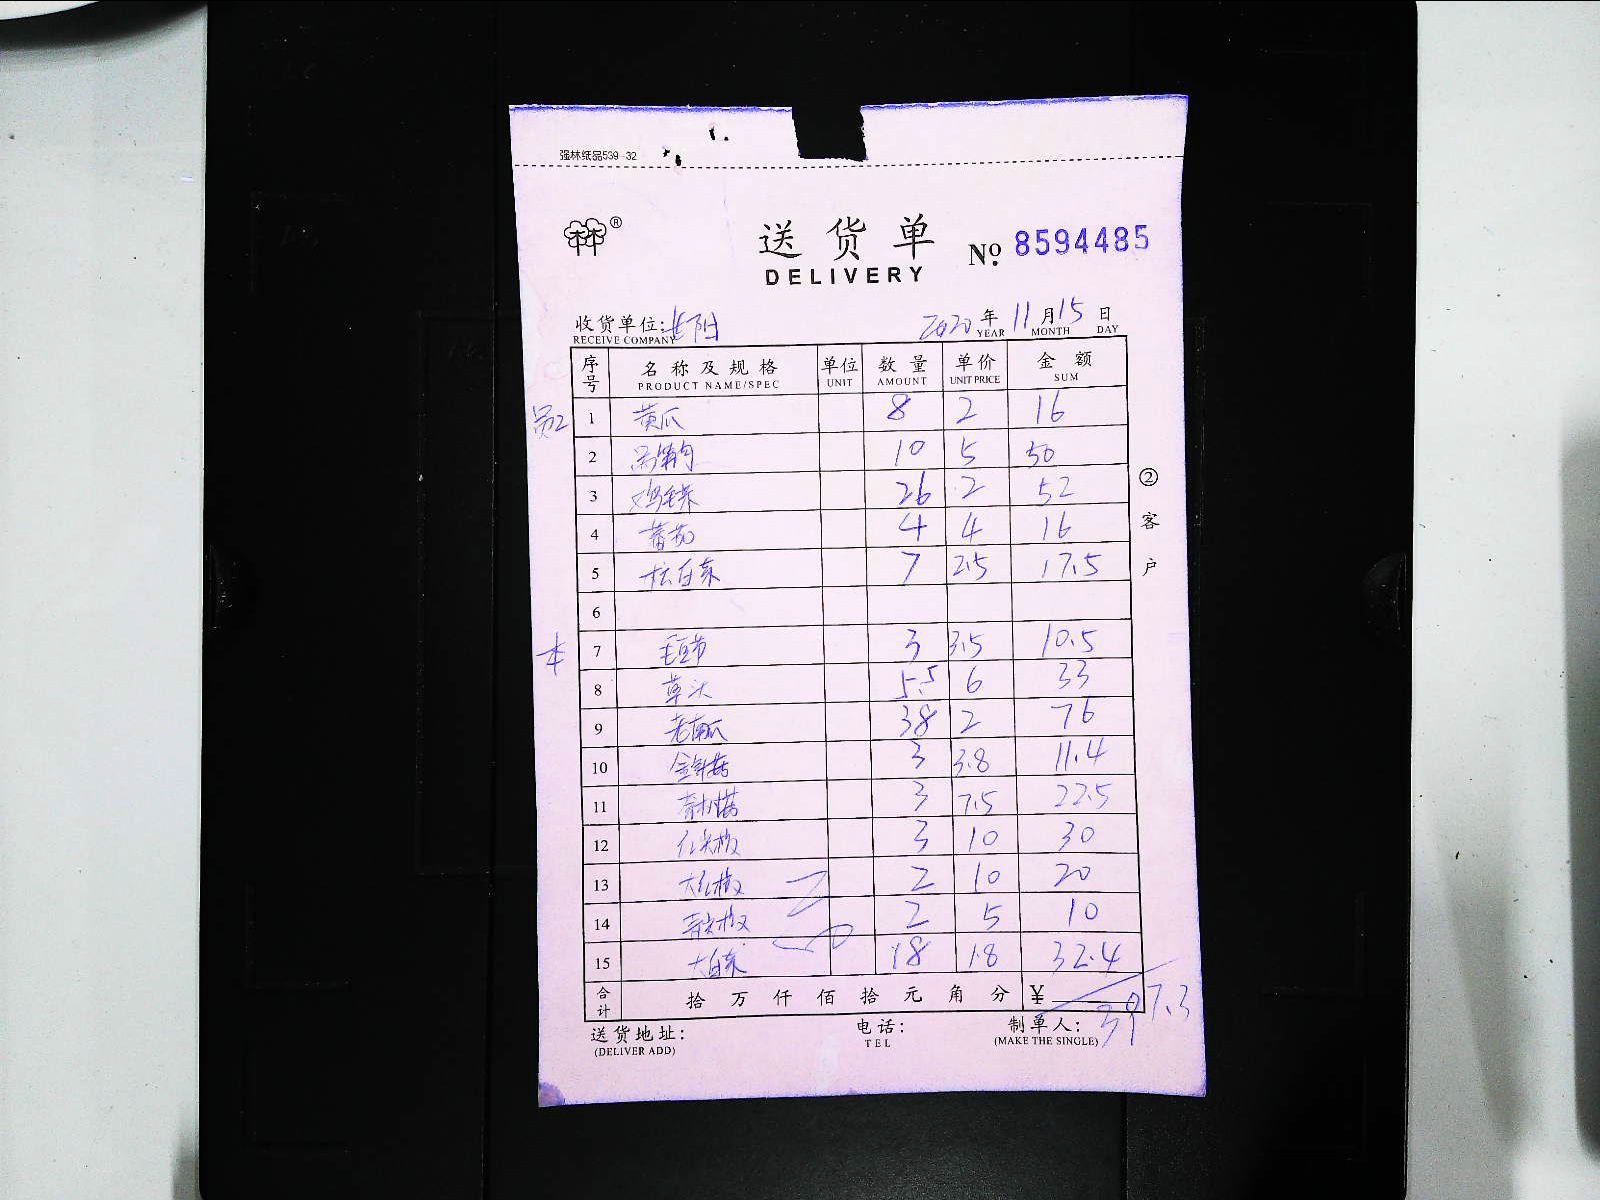 强林纸品539-32
林®
送货单
DELIVERY
№ 8594485
收货单位:
RECEIVE COMPANY
2020年11月15日
YEAR MONTH DAY
序号 名称及规格 单位 数量 单价 金额
PRODUCT NAME/SPEC UNIT AMOUNT UNIT PRICE SUM
1 黄瓜 8 2 16
2 10 5 50
3 鸡毛菜 26 2 52
4 蕃茄 4 4 16
5 杭白菜 7 2.5 17.5
6
本 7 毛豆节 3 3.5 10.5
8 草头 5.5 6 33
9 老南瓜 38 2 76
10 金针菇 3 3.8 11.4
11 3 7.5 22.5
12 红尖椒 3 10 30
13 大红椒 2 10 20
14 青尖椒 2 5 10
15 大白菜 18 1.8 32.4
合计 拾 万 仟 佰 拾 元 角 分 ¥ 397.3
送货地址: 电话: 制单人:
(DELIVER ADD) TEL (MAKE THE SINGLE)
②客户